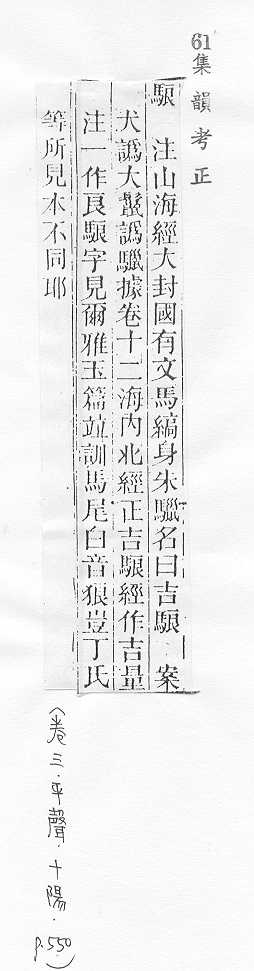 61集韻考正
䮾 注山海經大封國有文馬縞身朱驖名曰吉䮾 案
犬譌大鬛譌驖據卷十二海內北經正吉䮾經作吉量
注一作良䮾字見爾雅玉篇竝訓馬尾白音狼豈丁氏
等所見本不同耶
(卷三.平聲.十陽.p.550)